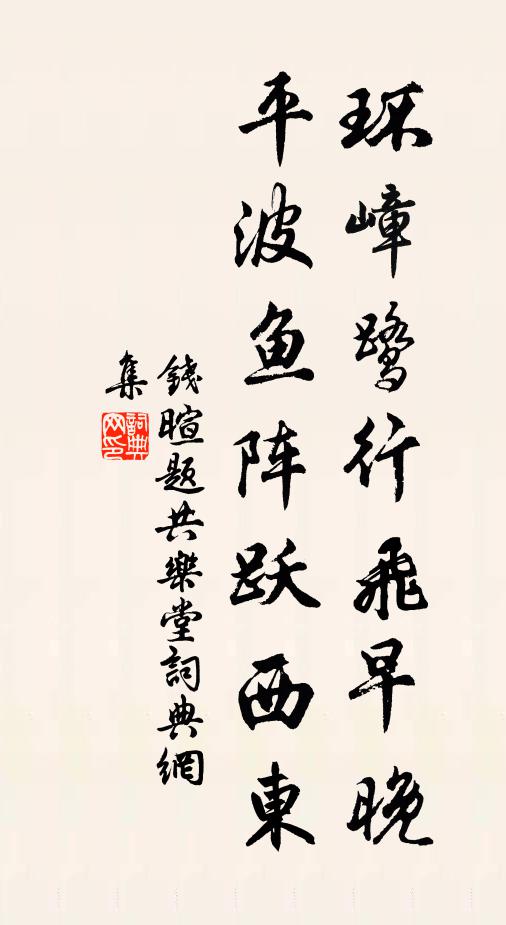 环嶂鹭行飛早晚
平波鱼阵跃西東
錢暄题共樂堂詞典網
集
詞典
网印